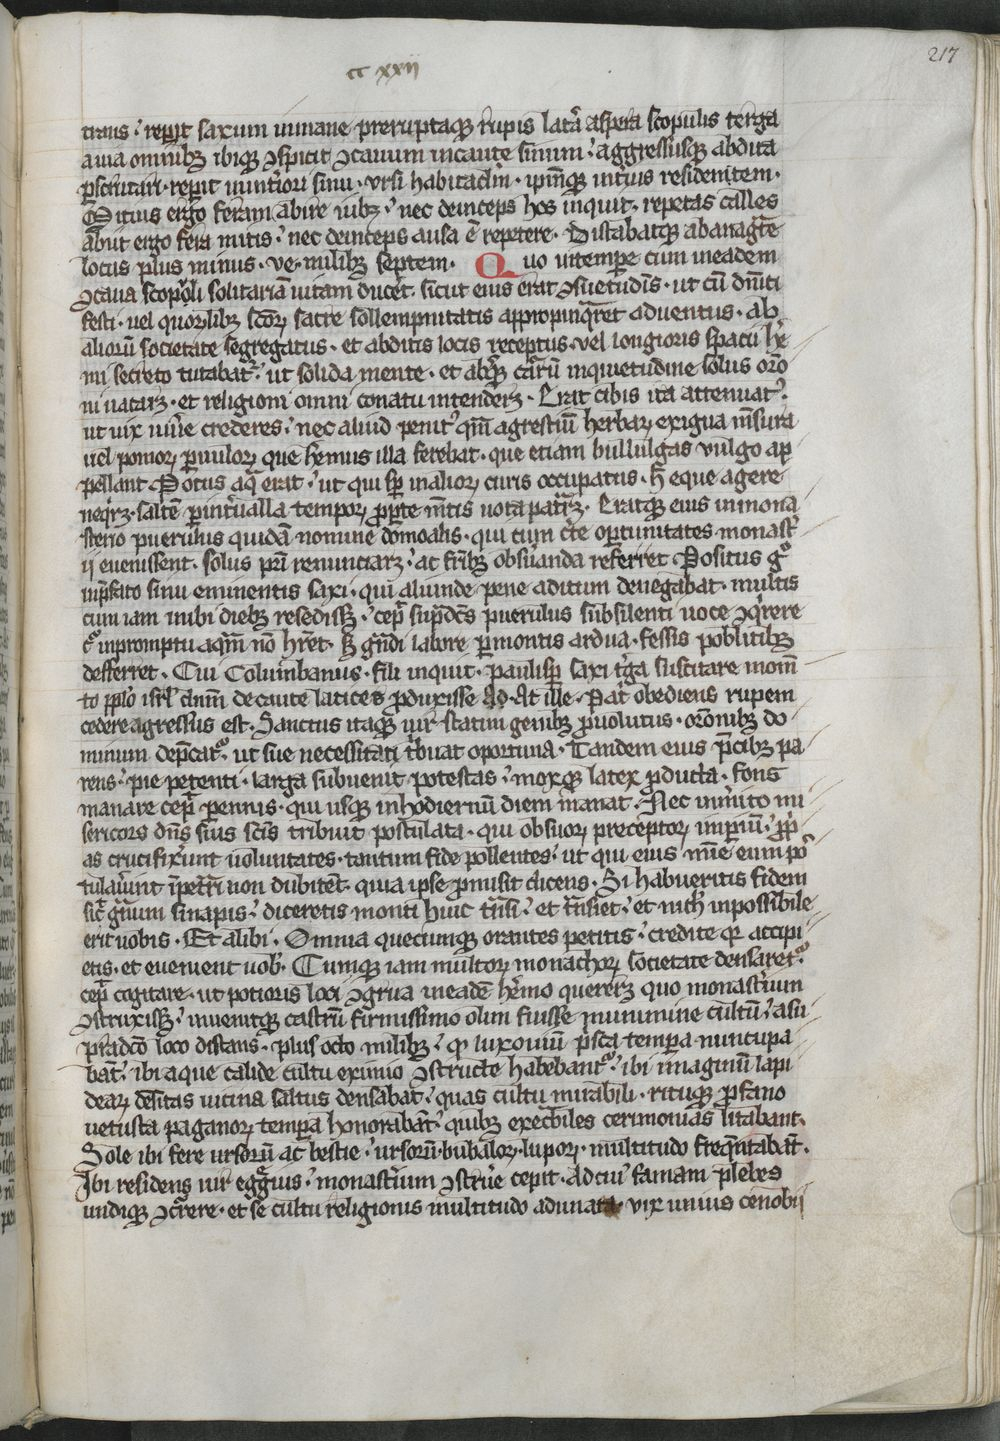 cc xxii
217
trans · repit saxum inmane preruptaqꝫ rupis latā aspera scopulis terga
auia omnibꝫ ibiqꝫ ꝯspicit ꝯcauum incaute sinum · aggressusqꝫ abdita
ꝑscrutari · repit inintiori sinu · ursi habitaclm̄ · ipm̄qꝫ intus residentem ·
Mitius ergo feram abire iubꝫ · nec deinceps hos inquit · repetas calles
abiit ergo fera mitis · nec deinceps ausa ē repetere · Distabatqꝫ abanagͣte
locus plus minus · ve · milibꝫ septem · Quo uitempe cum ineadem
ꝯcaua scopuli solitariā uitam ducet̄ · sicut eius erat ꝯsuetudīs · ut cū dn̄ici
festi · uel quoꝝlibꝫ scōꝝ sacre sollempnitatis appropinqret aduentus · ab
aliorū societate segregatus · et abditis locis receptus · vel longioris spacii he
mi secreto tutabat᷑ · ut solida mente · et absqꝫ curarū inquietudine solus oro
ni uatarꝫ · et religioni omni conatu intenderꝫ · Erat cibis ita attenuat᷑ ·
ut uix uiue crederes · nec aliud penit᷑ qm̄ agrestiū herbaꝝ exigua m̄sura
uel pomoꝝ ꝑuuloꝝ que hemus illa ferebat · que etiam bullulgas vulgo ap
pellant Potus aqͣ erat · ut qui sꝑ in alioꝝ curis occupatus · h̄ eque agere
neqrꝫ · saltē ꝑ interualla tempoꝝ ꝓpte mt̄is uota patrͣꝫ · Eratqꝫ eius inmona
sterio puerulus quidā nomine domoalis · qui cum cte oportunitates monast᷑
ii euenissent · solus pri renunciarꝫ · ac fribꝫ obseruanda referret Positus gͦ
inprefato sinu eminentis saxi · qui aliunde pene aditum denegabat · multis
cum iam inibi diebꝫ resedissꝫ · cepͣ supdcs puerulus subsilenti uoce ꝯqrere
cͦ inpromptu aqm̄ nō hret · sꝫ gndi labore ꝑ montis ardua · fessis poblitibꝫ
defferret · Cui Columbanus · fili inquit · paulisꝑ saxi trga suscitare mom̄
to pplo isrl dn̄m de caute latices ꝓduxisse Ad · At ille · Pat᷑ obediens rupem
cedere agressus est · Sanctus itaqꝫ uir statim genibꝫ ꝓuolutus · orōnibꝫ do
minum depcat᷑ · ut sue necessitati tribuat oportuna · Tandem eius pcibꝫ pa
rens · pie petenti · larga subuenit potestas · moxqꝫ latex ꝓducta · fons
manare cepͣ pennis · qui usqꝫ inhodiernū diem manat · Nec inmito mi
sericors dn̄s suis scis tribuit postulata · qui obsuoꝝ preceptoꝝ imperiū · ppi
as crucifixerunt uoluntates · tantum fide pollentes · ut qui eius mīe eum po
tulauerint ipetri non dubitent · quia ipse ꝓmisit dicens · Si habueritis fidem
sicͣ gnum sinapis · diceretis monti huic transi · et transiet · et nich inpossibile
erit uobis · Et alibi · Omnia quecumqꝫ orantes petitis · credite qꝛ accipi
etis · et euenient uob · Cumqꝫ iam multoꝝ monachoꝝ societate densaret᷑
cepͣ cogitare · ut potioris loci ꝯgrua ineadē hemo quererꝫ quo monastium
ꝯstruxissꝫ · inuenitqꝫ castrū firmissimo olim fuisse munimine cultū · asu
pradcō loco distans · plus octo milibꝫ · qꝫ luxouiū pisca tempa nuncupa
bāt · ibi aque calide cultu eximio ꝯstructe habebant᷑ · ibi imaginū lapi
deaꝝ desitas uicina saltus densabat · quas cultu mirabili · rituqꝫ ꝓfano
uetusta paganoꝝ tempa honorabāt · quibꝫ execbiles cerimonias litabant ·
Sole ibi fere ursorū ac bestie · ursorū · bubaloꝝ · lupoꝝ · multitudo freqntabāt ·
Ibi residens uir eggius · monastium ꝯstrue cepit · Ad cui᷑ famam plebes
undiqꝫ ꝯcrere · et se cultu religionis multitudo adunata · vix unius cenobii